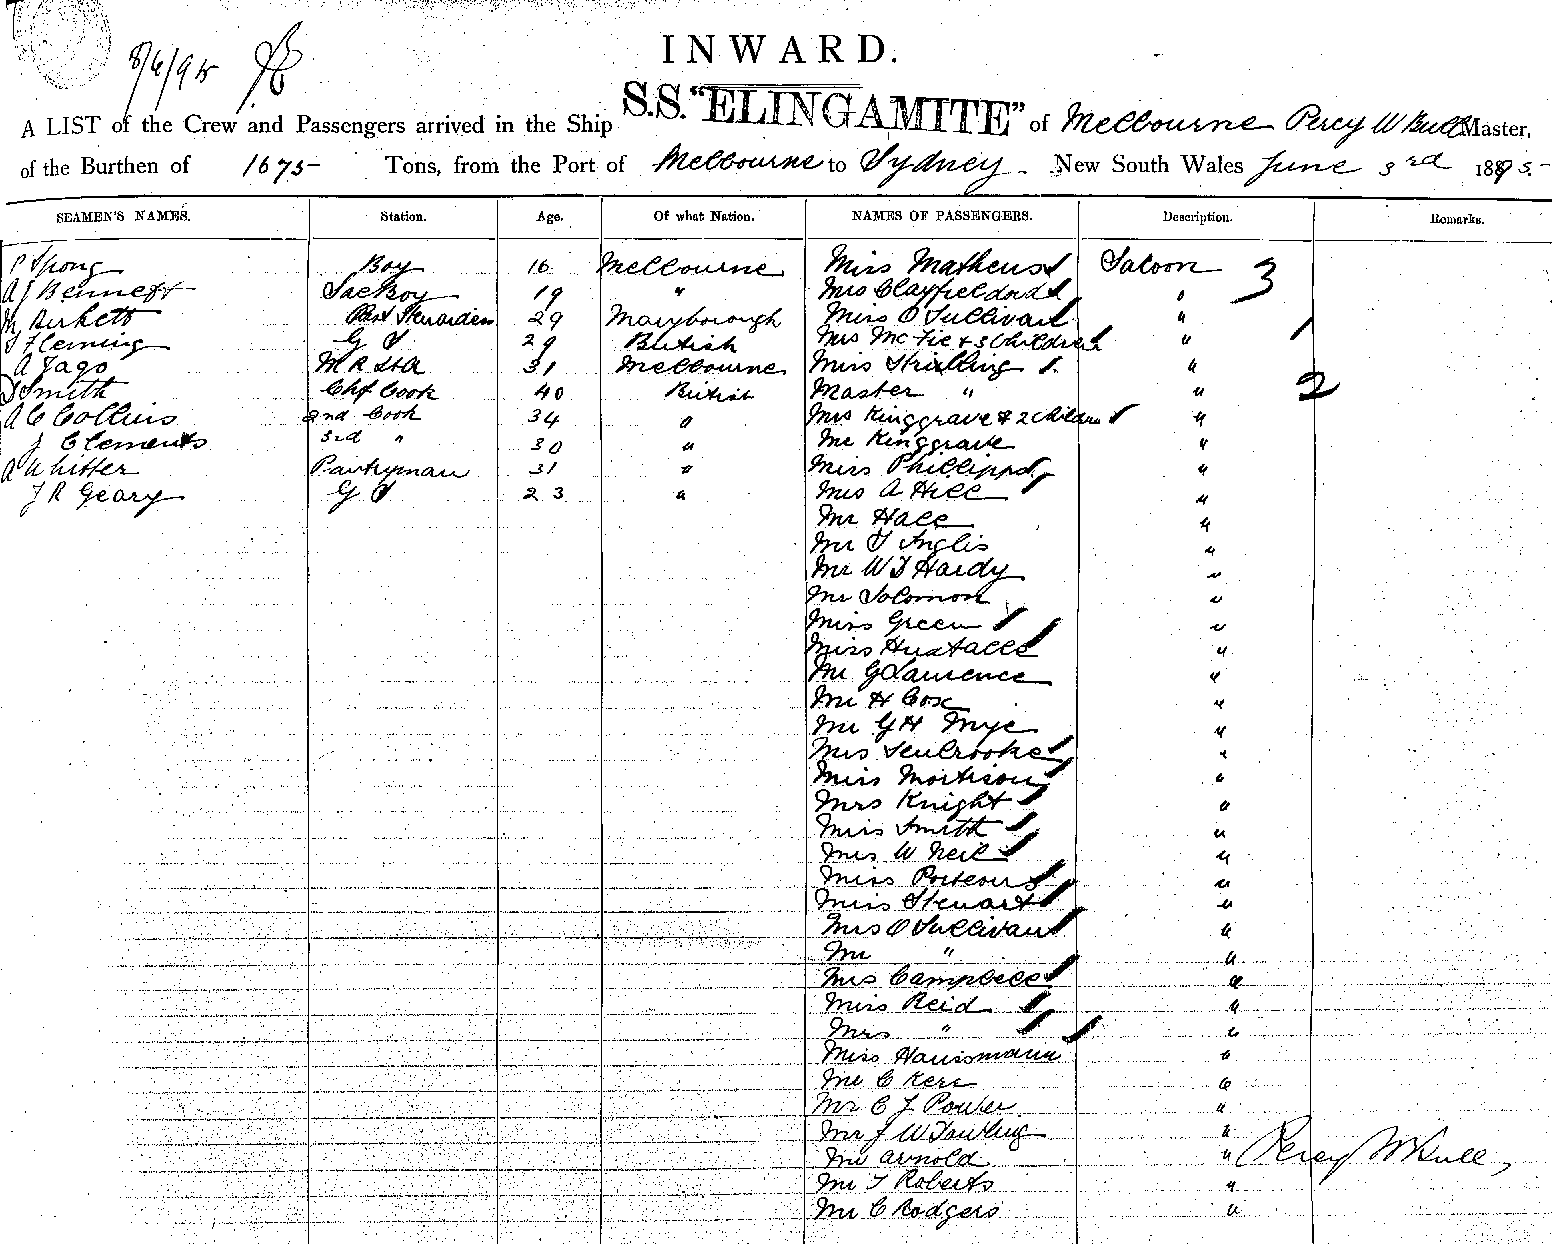 8/6/95
INWARD.
A LIST of the Crew and Passengers arrived in the Ship S.S. "ELINGAMITE" of Melbourne Percy W Bull Master,
of the Burthen of 1675 Tons, from the Port of Melbourne to Sydney. New South Wales June 3rd 1895.
SEAMEN'S NAMES. Station. Age. Of what Nation. NAMES OF PASSENGERS. Description. Remarks.
P Spong Boy 16 Melbourne Miss Matheus Saloon 3
A J Bennett 19 " Mrs "
Birkett 29 Maryborough Miss O Sullivan "
Fleming G S 29 British Mrs McFie & 3 Children " 1
A Jago 31 Melbourne Miss Stribling "
Smith Chf Cook 40 British Master " " 2
A C Collins 2nd Cook 34 " Mrs Kinggrave & 2 Children "
J Clements 3rd " 30 " Mr Kinggrave "
A Whitter Pantryman 31 " Miss Phillipps "
J R Geary G S 23 " Mrs A Hill "
Mr Hall "
Mr T Inglis "
Mr W T Hardy "
Mr Solomon "
Miss Green "
Miss Huxtable "
Mr G Laurence "
Mr H Cox "
Mr G H Mye "
Mrs "
Miss Morrison "
Mrs Knight "
Miss Smith "
Mrs W Neil "
Miss Porteous "
Miss Stewart "
Mrs O Sullivan "
Mr " "
Mrs Campbell "
Miss Reid "
Mrs " "
Miss Hausmann "
Mr C Kerr "
Mr C J Power "
Mr J W "
Mr Arnold " Percy W Bull
Mr T Roberts "
Mr C Rodgers "